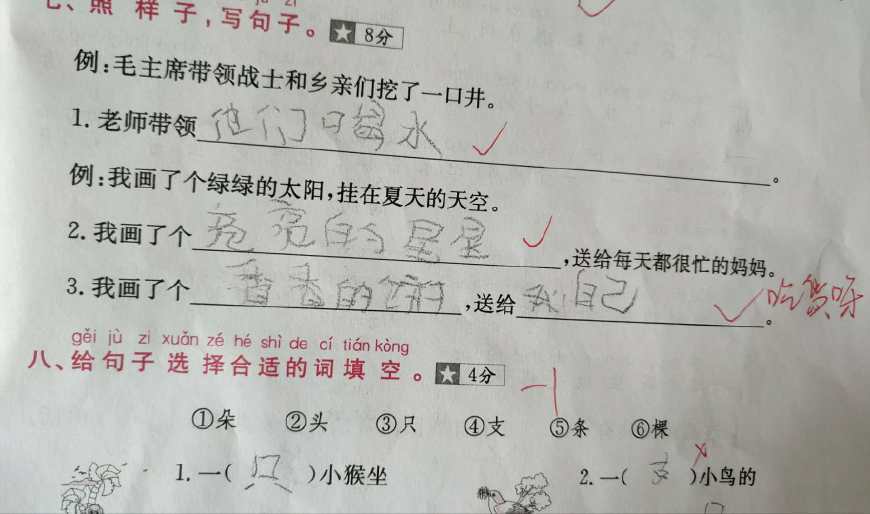 七、照样子,写句子。★ 8分
例:毛主席带领战士和乡亲们挖了一口井。
1. 老师带领他们口喝水。
例:我画了个绿绿的太阳,挂在夏天的天空。
2. 我画了个亮亮的星星,送给每天都很忙的妈妈。
3. 我画了个香香的,送给我自己。 吃货呀
gěi jù zi xuǎn zé hé shì de cí tián kòng
八、给句子选择合适的词填空。★ 4分 -1
①朵 ②头 ③只 ④支 ⑤条 ⑥棵
1. 一( 只 )小猴坐 2. 一( )小鸟的